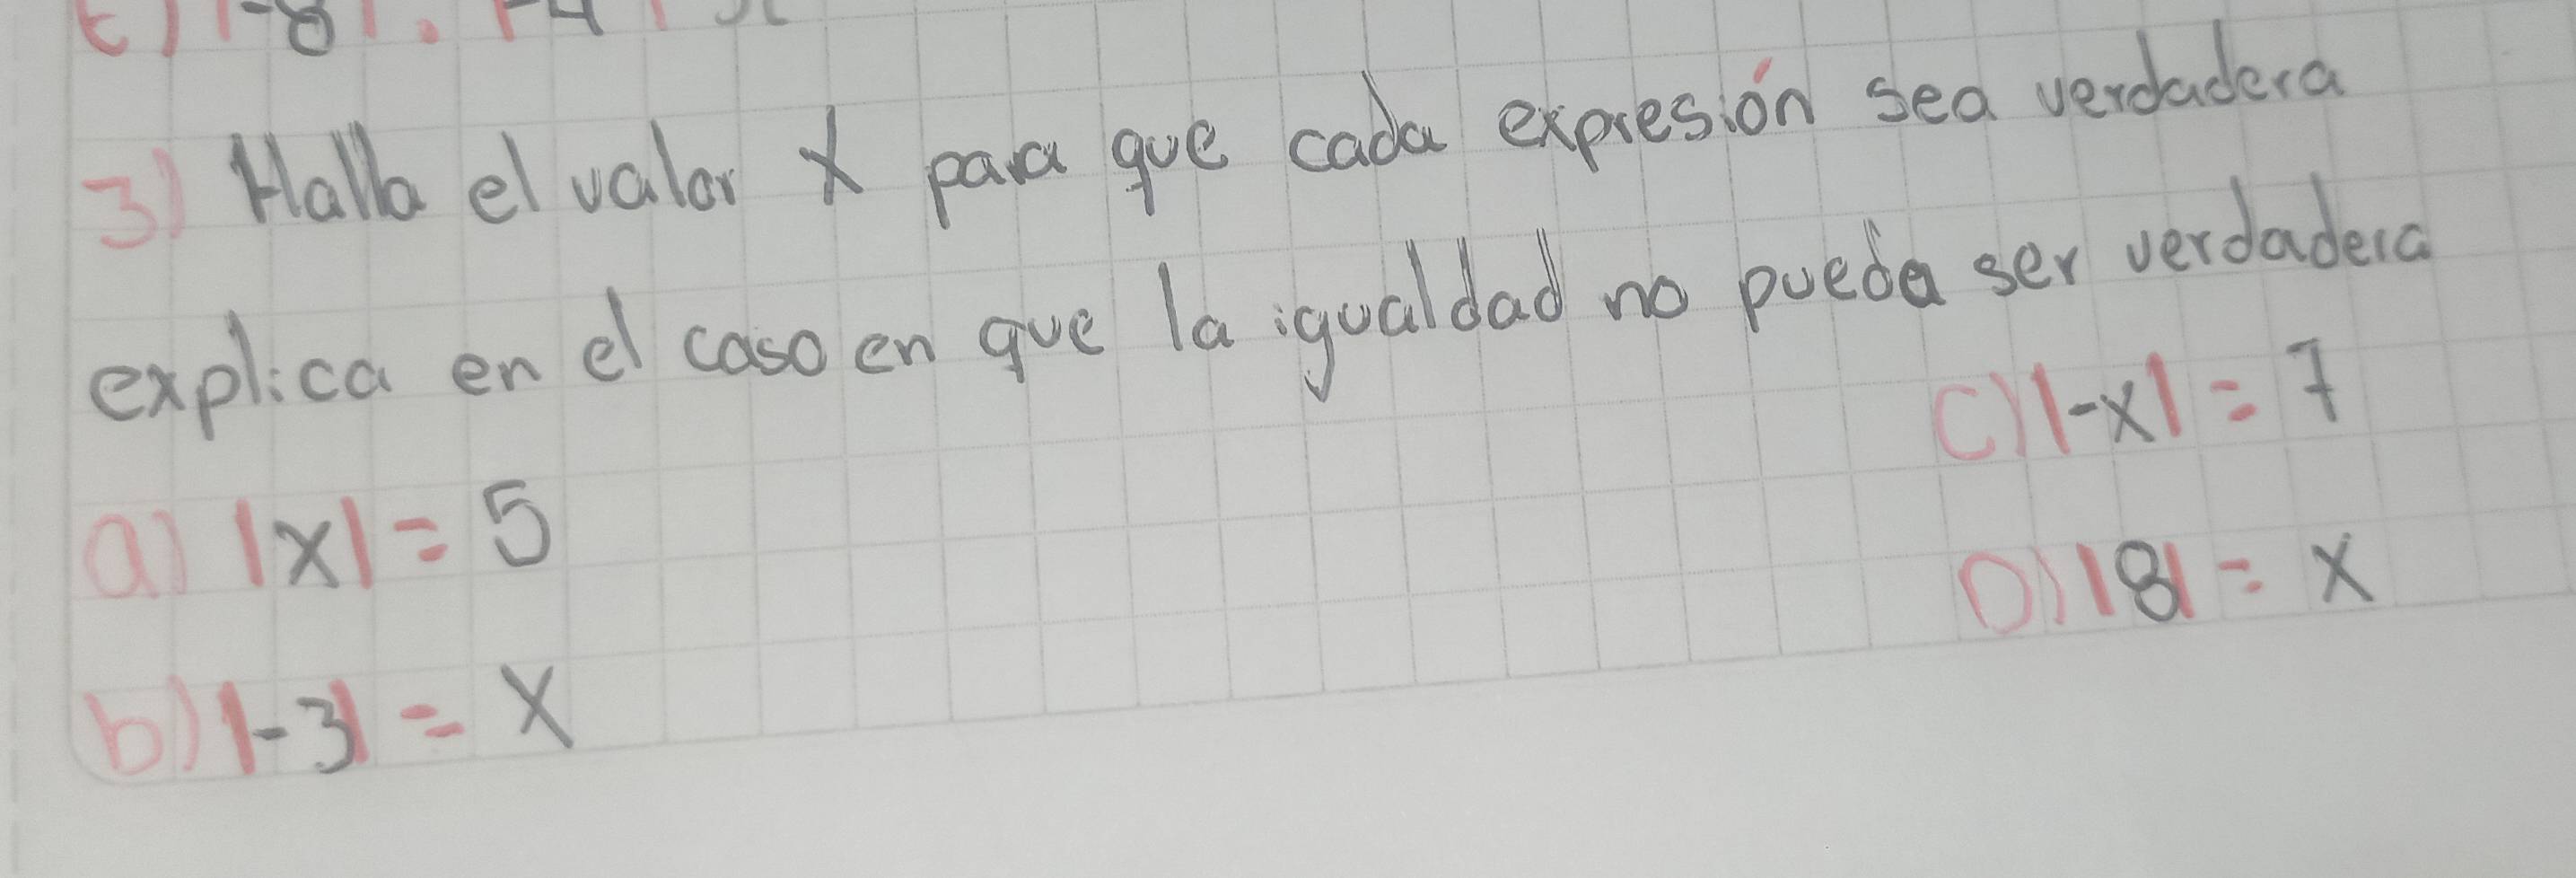 3) Halla el valor X para que cada expresión sea verdadera
explica en el caso en que la igualdad no pueda ser verdadera
a) |x| = 5
b) |-3| = X
c) |-x| = 7
D) |8| = x